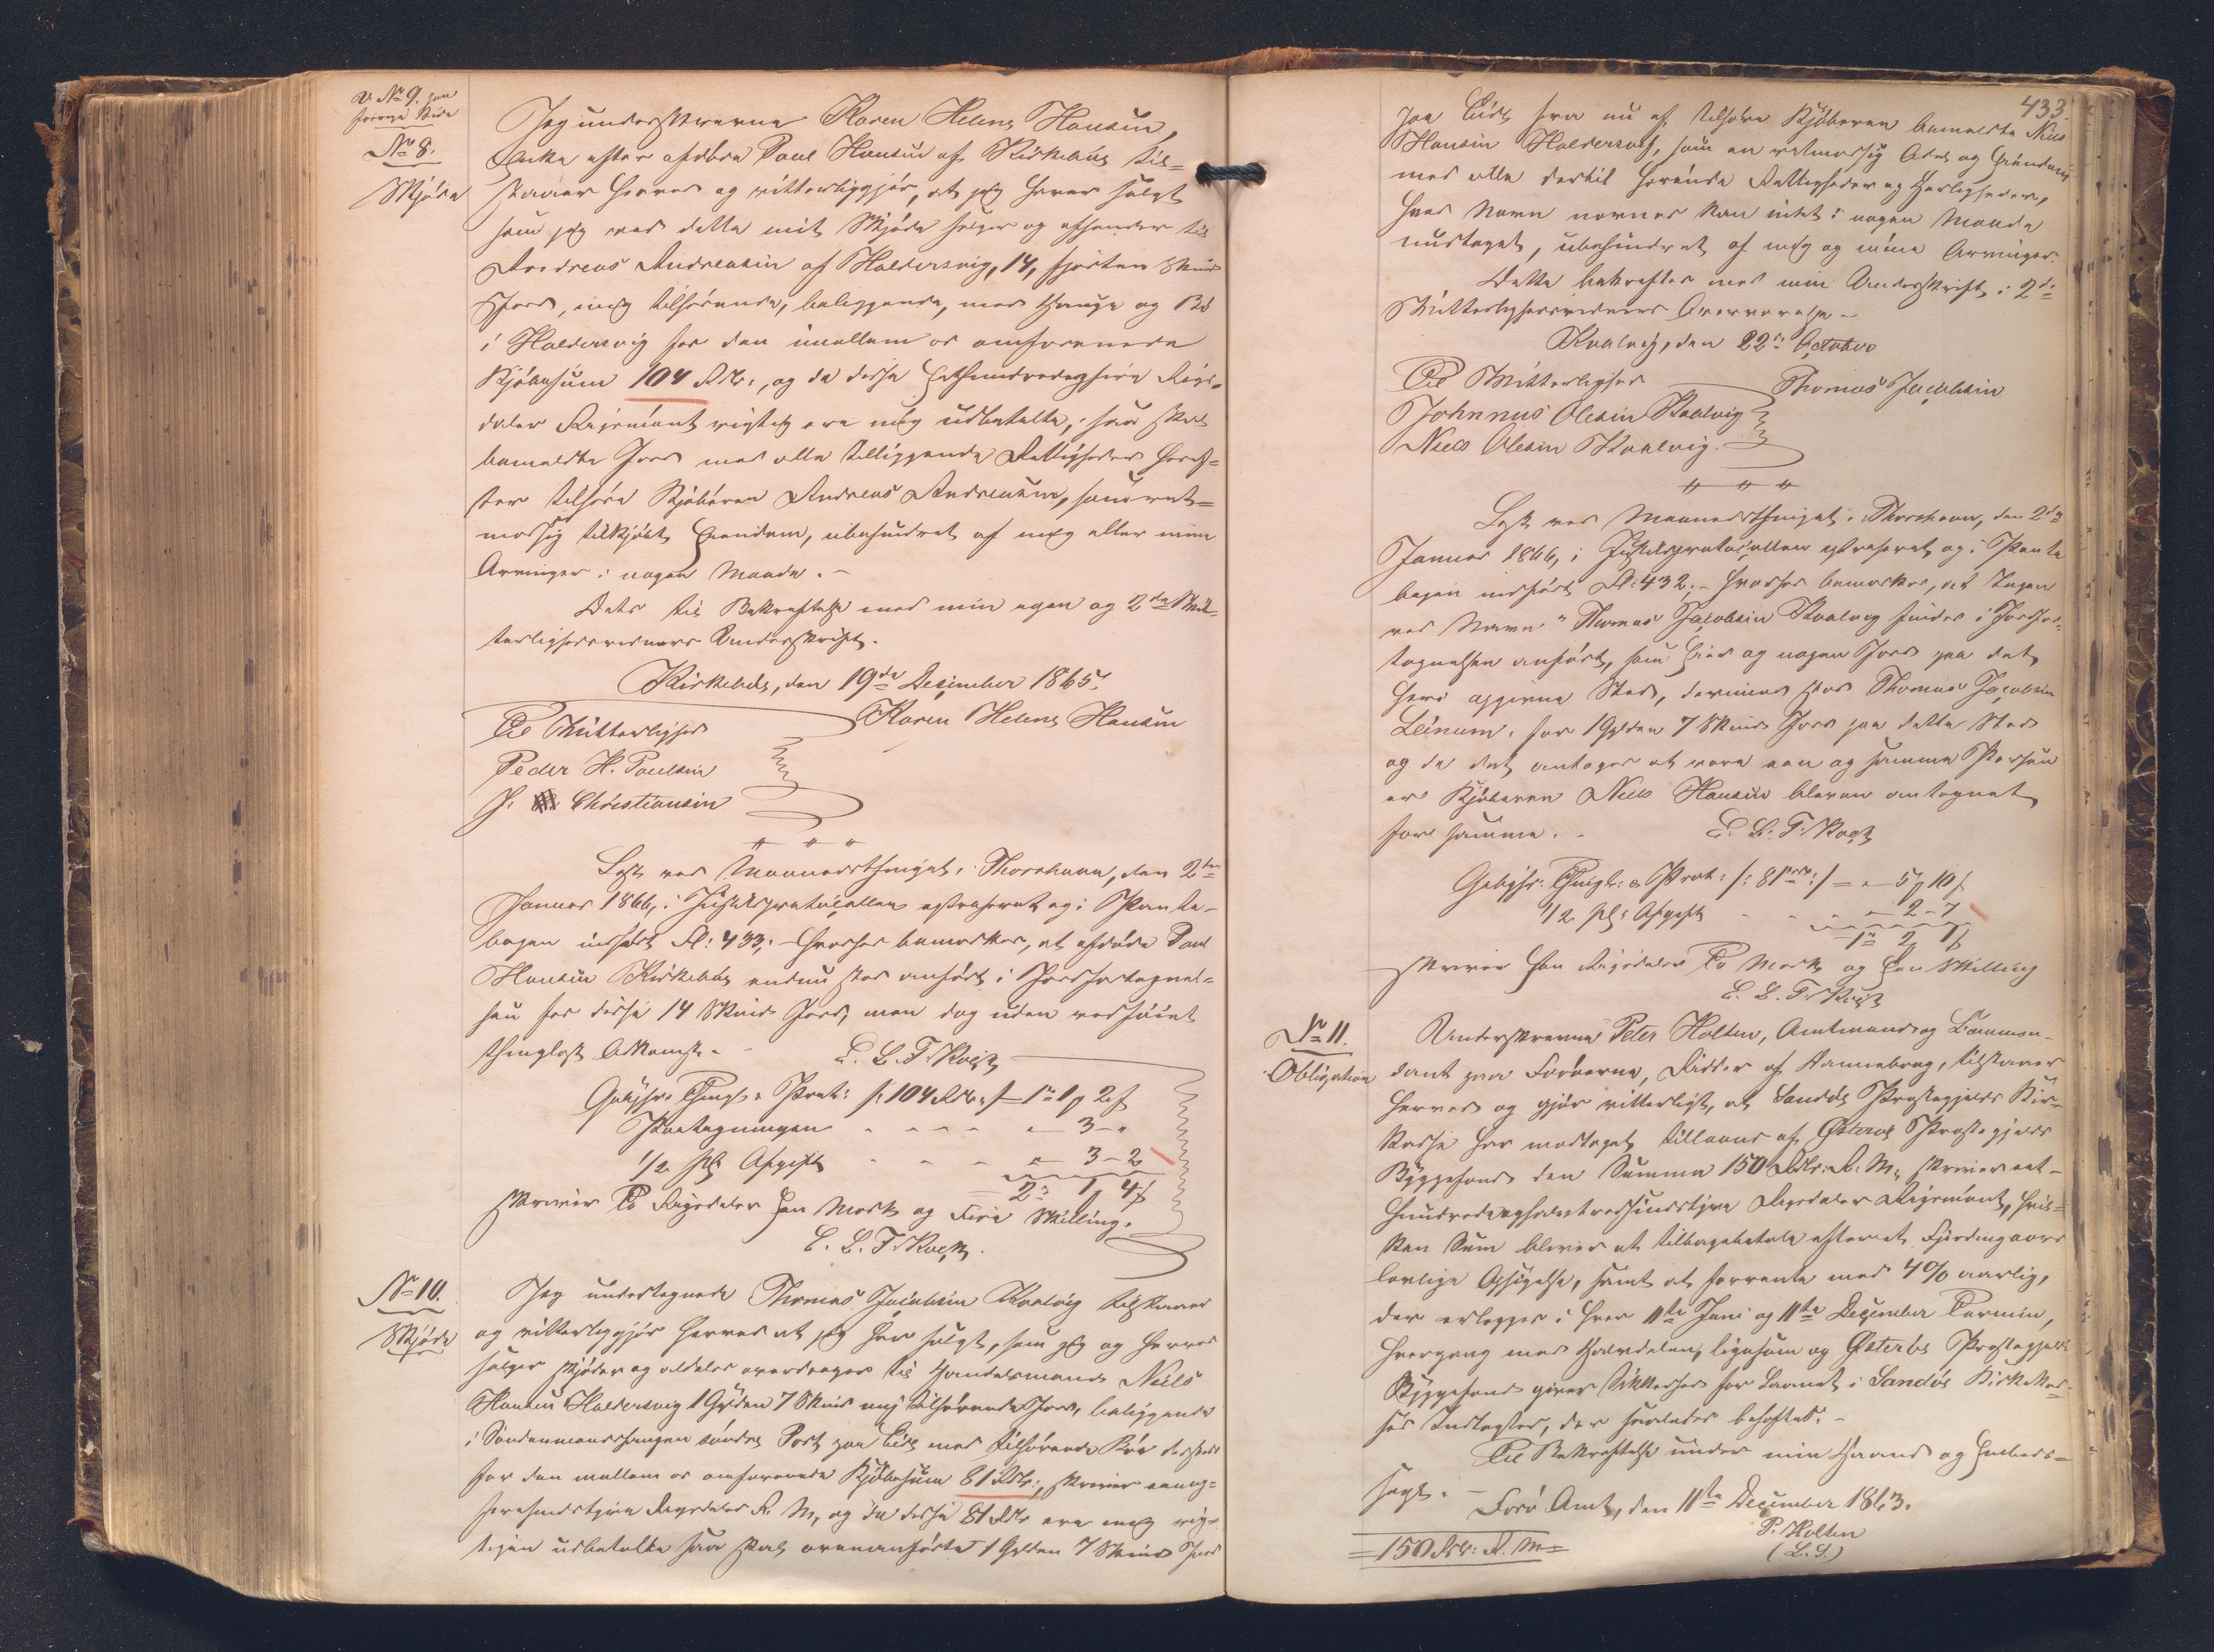 V. No 9. paa
forrige Side
No 8.
Skjøde
Jeg underskrevne Karen Helene Hansen,
Enke efter afdøde Poul Hansen af Kirkebø, til-
staaer herved og vitterliggjør, at jeg haver solgt
som jeg ved dette mit Skjøde sælger og afhænder til
Andreas Andreasen af Haldersvig, 14, fjorten Skind
Jord, mig tilhørende, beliggende, med Hauge og Bø
i Haldersvig for den imellem os omforenede
Kjøbesum 104 Rdlr., og da disse Ethundredeogfire Rigs-
daler Rigsmønt rigtig ere mig udbetalte, saa skal
bemeldte Jord med alle tilliggende Rettigheder heref-
ter tilhøre Kjøberen Andreas Andreasen, som ret-
mæssig tilkjøbt Eiendom, ubehindret af mig eller mine
Arvinger i nogen Maade. -
Dets til Bekræftelse med min egen og 2de Vit-
terlighedsvidners Underskrift.
Kirkebø, den 19de December 1865.
Karen Helene Hansen
Til Vitterlighed
Peder H. Poulsen
J. Christiansen
Læst ved Maanedsthinget i Thorshavn, den 2den
Januar 1866, i Justitsprotocollen extraheret og i Pante-
bogen indført Fol: 433; - hvorhos bemærkes, at afdøde Poul
Hansen Kirkebø endnu staar anført i Jordfortegnel-
sen for disse 14 Skind Jord, men dog uden vedføiet
thinglæst Adkomst. -
E. L. T. Kock
Gebyhr: Thingl: & Prot: /: 104 Rdlr :/ 1rd 1 # 2 ß
Paategningen - - - - " - 3 - "
1/2 pCt Afgift - - - " - 3 - 2
= 2rd 1 # 4 ß
skriver To Rigsdaler Een Mark og Fire Skilling.
E. L. T. Kock.
No 10.
Skjøde
Jeg undertegnede Thomas Jacobsen Kvalvig tilstaaer
og vitterliggjør herved at jeg har solgt, som jeg og herved
sælger skjøder og aldeles overdrager til Handelsmand Niels
Hansen Haldersvig 1 Gylden 7 Skind mig tilhørende Jord, beliggende
i Søndenmandshaugen søndre Part paa Eide med tilhørende Bøe dersteds
for den mellem os omforenede Kjøbesum 81 Rdlr:, skriver eenog-
firesindstyve Rigsdaler R. M, og da disse 81 Rdlr ere mig rig-
tigen udbetalte saa skal ovenanførte 1 Gylden 7 Skind Jord
433.
paa Eide fra nu af tilhøre Kjøberen bemeldte Niels
Hansen Haldersvig, som en retmæssig Odel og Eiendom
med alle dertil hørende Rettigheder og Herligheder,
hvad Navn nævnes kan intet i nogen Maade
undtaget, ubehindret af mig og mine Arvinger
Dette bekræftes med min Underskrift, i 2de
Vitterlighedsvidners Overværelse -
Kvalvig, den 22de October
Thomas Jacobsen
Til Vitterlighed
Johannus Olesen Kvalvig
Niels Olesen Kvalvig.
Læst ved Maanedsthinget i Thorshavn, den 2den
Januar 1866, i Justitsprotocollen extraheret og i Pante
bogen indført Fol: 432; - hvorhos bemærkes, at Ingen
ved Navn "Thomas Jacobsen Kvalvig findes i Jordfor-
tegnelsen anført, som Eier og nogen Jord paa det
heri opgivne Sted, derimod staar Thomas Jacobsen
Leinum, for 1 Gylden 7 Skind Jord paa dette Sted
og da det antages at være een og samme Person
er Kjøberen Niels Hansen bleven antegnet
for samme. -
E. L. T. Kock
Gebyhr: Thingl: & Prot: /: 81 Rdlr :/ = " - 5 # 10 ß
1/2 pCt Afgift - - - " - 2 - 7
= 1rd 2 # 1 ß
skriver Een Rigsdaler To Mark og Een Skilling
E. L. T. Kock
No 11.
Obligation
Underskrevne Peter Holten, Amtmand og Comman-
dant paa Færøerne, Ridder af Dannebrog, tilstaaer
herved og gjør vitterligt, at Sandøe Præstegjelds Kir-
kasse har modtaget tillaans af Østerøe Præstegjelds
Byggefond den Summa 150 Rdlr: R: M:, skriver eet-
hundredeoghalvtredsindstyve Rigsdaler Rigsmønt, hvil-
ken Sum bliver at tilbagebetale efter et Fjerdingaars
lovlige Opsigelse, samt at forrente med 4% aarlig,
der erlægges i hver 11te Juni og 11te December Termin,
hvergang med Halvdelen, ligesom og Østerøe Præstegjelds
Byggefond giver Sikkerhed for Laanet i Sandøe Kirkekas-
ses Indtægter, der saaledes behæftes. -
Til Bekræftelse under min Haand og Embeds-
segl. -
Færø Amt, den 11te December 1863.
P. Holten
(L. S.)
= 150 Rdlr: R. M =